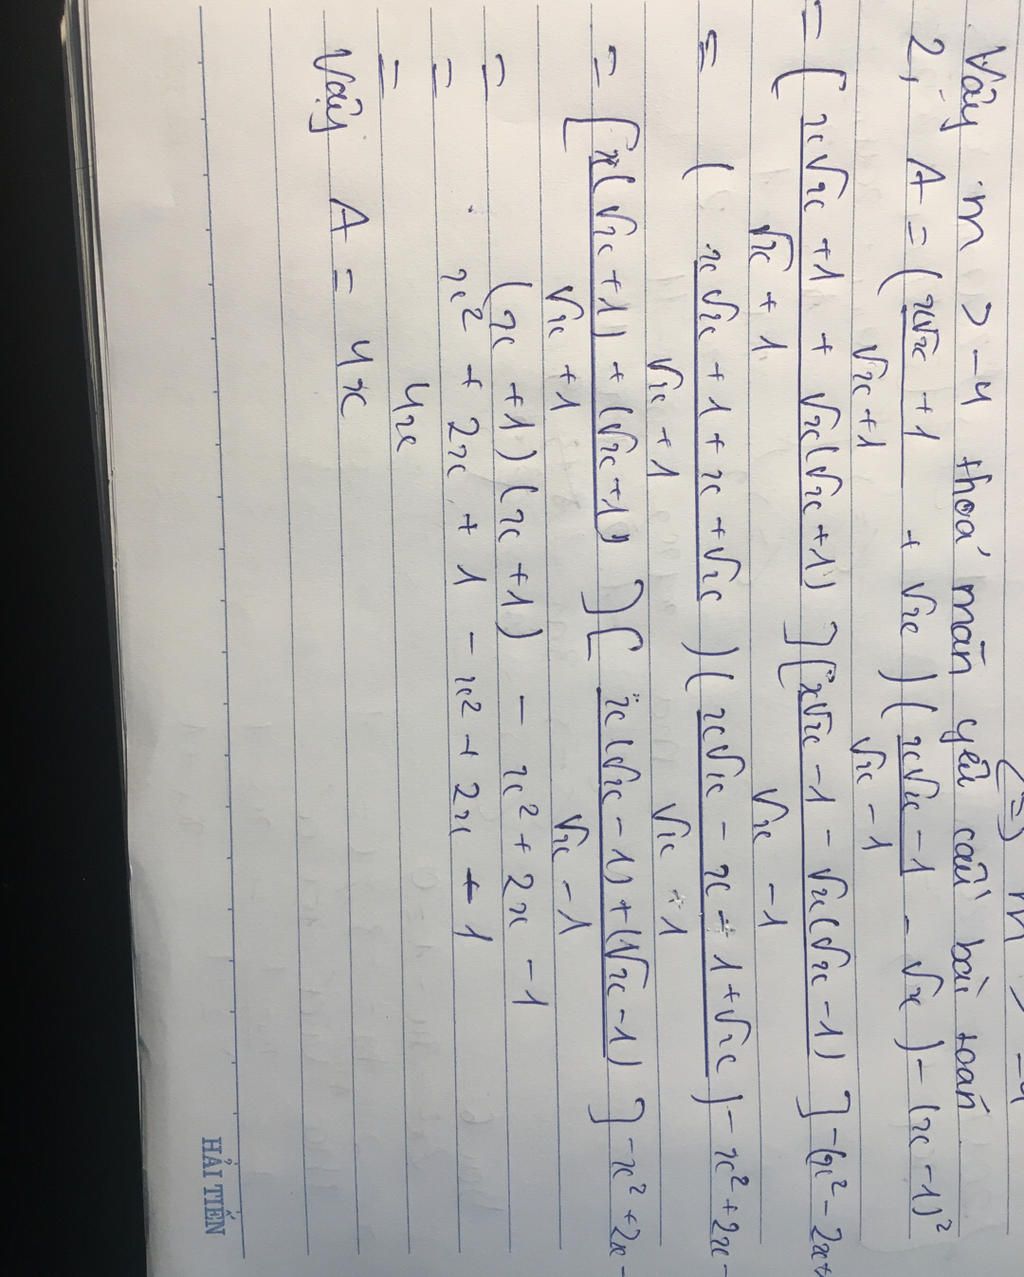 (=) m > -4
Vậy m > -4 thoả mãn yêu cầu bài toán
2, A = ( x√x + 1 / √x + 1 + √x ) ( x√x - 1 / √x - 1 - √x ) - (x - 1)²
= ( x√x + 1 + √x(√x + 1) / √x + 1 ] [ x√x - 1 - √x(√x - 1) / √x - 1 ] - (x² - 2x+
= ( x√x + 1 + x + √x / √x + 1 ) ( x√x - x - 1 + √x / √x + 1 ) - x² + 2x -
= [ x(√x + 1) + (√x + 1) / √x + 1 ] [ x(√x - 1) + (√x - 1) / √x - 1 ] - x² + 2x -
= (x + 1) (x + 1) - x² + 2x - 1
= x² + 2x + 1 - x² + 2x - 1
= 4x
Vậy A = 4x
HẢI TIẾN